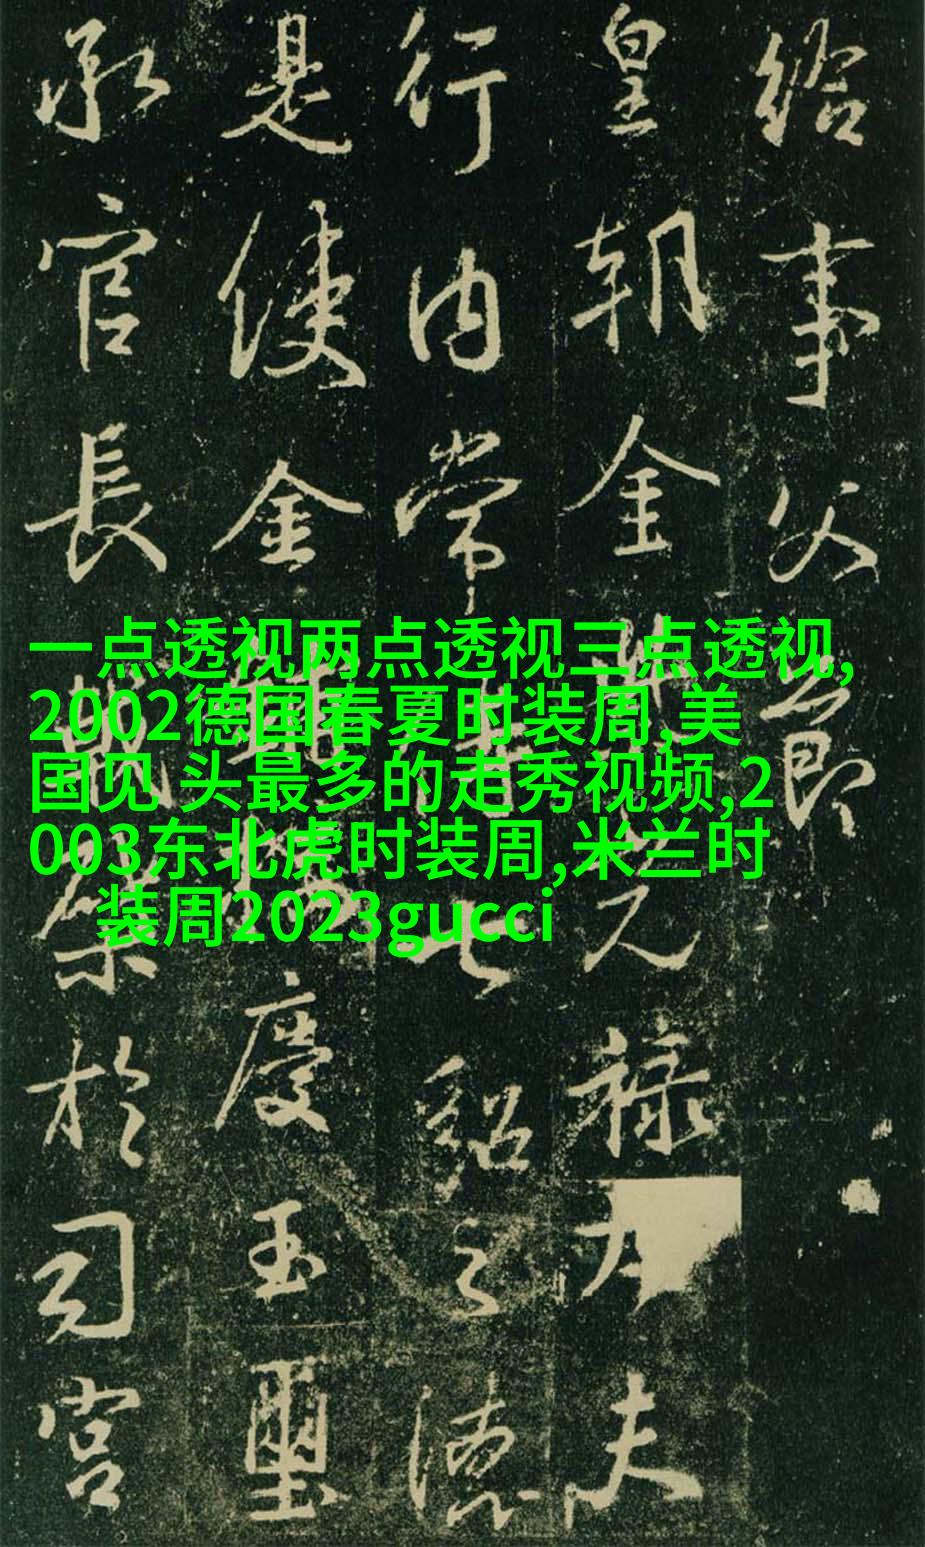 給事父節
皇朝金光祿大夫
行內常侍上紹之德
是使金慶玉璽
承官長於司宮
一点透视两点透视三点透视,
2002德国春夏时装周,美
国见 头最多的走秀视频,2
003东北虎时装周,米兰时
装周2023gucci